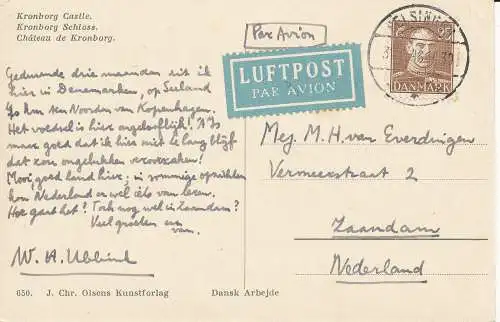 Kronborg Castle.
Kronborg Schloss.
Château de Kronborg.
Par Avion
LUFTPOST
PAR AVION
HELSINGØR
DANMARK
Gedurende drie maanden zit ik
hier in Denemarken, op Seeland
40 km ten Noorden van Kopenhagen.
Het voedsel is hier ongelooflijk! 't Is
maar goed dat ik hier niet te lang blijf
dat zou ongelukken veroorzaken!
Mooi goed land hier; in sommige opzichten
kon Nederland er wel iets van leren.
Hoe gaat het? Toch nog wel in Zaandam?
Veel groeten
van.
W. A. Ubbink
Mej M. H. van Everdingen
Vermeerstraat 2
Zaandam
Nederland
650. J. Chr. Olsens Kunstforlag Dansk Arbejde